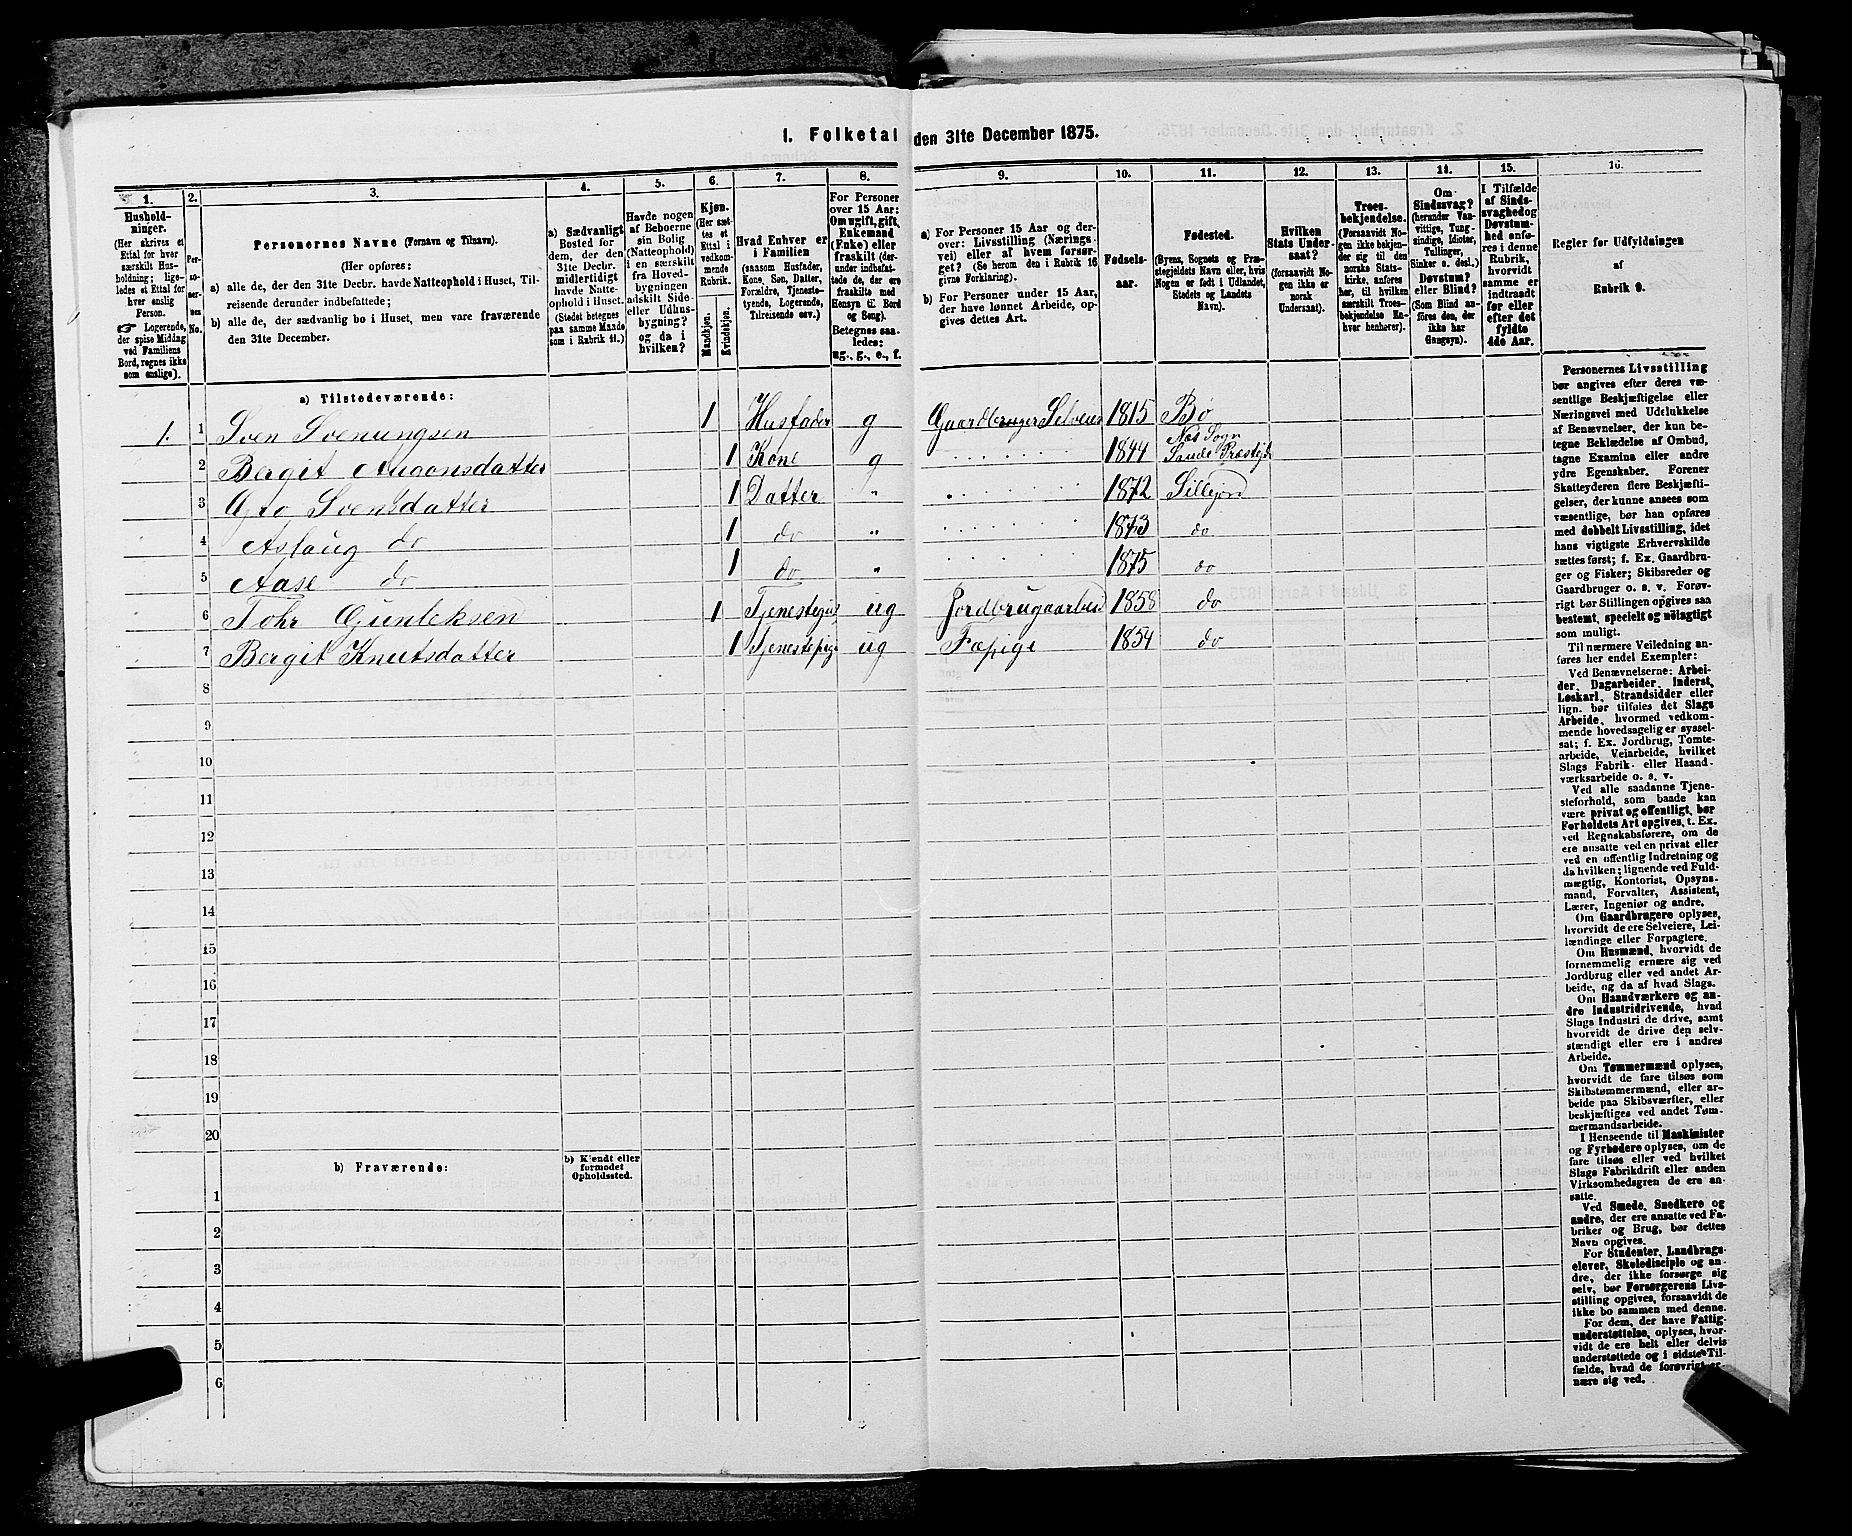 1. Folketal den 31te December 1875.
1. 2. 3. 4. 5. 6. 7. 8. 9. 10. 11. 12. 13. 14. 15. 16.
Hushold-
ninger.
(Her skrives et
Ettal for hver
særskilt Hus-
holdning; lige-
ledes et Ettal for
hver enslig
Person.
☞ Logerende,
der spise Middag
ved Familiens
Bord, regnes ikke
som enslige).
Per-
so-
ner-
nes
No.
Personernes Navne (Fornavn og Tilnavn).
(Her opføres:
a) alle de, der den 31te Decbr. havde Natteophold i Huset, Til-
reisende derunder indbefattede;
b) alle de, der sædvanlig bo i Huset, men vare fraværende
den 31te December.
a) Sædvanligt
Bosted for
dem, der den
31te Decbr.
midlertidigt
havde Natte-
ophold i Huset.
(Stedet betegnes
paa samme Maade
som i Rubrik 11.)
Havde nogen
af Beboerne
sin Bolig
(Natteophold)
i en særskilt
fra Hoved-
bygningen
adskilt Side-
eller Udhus-
bygning?
og da i
hvilken?
Kjøn.
(Her sæt-
tes et
Ettal i
vedkom-
mende
Rubrik.
Mandkjøn.
Kvindekjøn.
Hvad Enhver er
i Familien
(saasom Husfader,
Kone, Søn, Datter,
Forældre, Tjeneste-
tyende, Logerende,
Tilreisende osv.)
For Personer
over 15 Aar:
Om ugift, gift,
Enkemand
(Enke) eller
fraskilt (der-
under indbefat-
tede de, der ere
fraskilte med
Hensyn til Bord
og Seng).
Betegnes saa-
ledes:
ug., g., e., f.
a) For Personer 15 Aar og der-
over: Livsstilling (Nærings-
vei) eller af hvem forsør-
get? (Se herom den i Rubrik 16
givne Forklaring).
b) For Personer under 15 Aar,
der have lønnet Arbeide, op-
gives dettes Art.
Fødsels-
aar.
Fødested.
(Byens, Sognets og Præ-
stegjeldets Navn eller, hvis
Nogen er født i Udlandet,
Stedets og Landets
Navn).
Hvilken
Stats Under-
saat?
(forsaavidt No-
gen ikke er
norsk
Undersaat).
Troes-
bekjendelse.
(Forsaavidt No-
gen ikke bekjen-
der sig til den
norske Stats-
kirke, anføres
her, til hvilken
særskilt Troes-
bekjendelse En-
hver henhører).
Om
Sindssvag?
(herunder Van-
vittige, Tung-
sindige, Idioter,
Tullinger,
Sinker o. desl.)
Døvstum?
eller Blind?
(Som Blind an-
føres den, der
ikke har
Gangsyn).
I Tilfælde
af Sinds-
svaghed og
Døvstum-
hed anfø-
res i denne
Rubrik,
hvorvidt
samme er
indtraadt
før eller
efter det
fyldte
4de Aar.
Regler for Udfyldningen
af
Rubrik 9.
a) Tilstedeværende:
1. 1 Sven Svenungsen 1 Husfader g Gaardbruger Selveier 1815 Bø
2 Bergit 1 Kone g 1844 Næs Sogn
Saude Præstegjd
3 Svensdatter 1 Datter " 1872 Sillejord
4 Aslaug do 1 do " 1873 do
5 Aase do 1 do " 1875 do
6 Tohr Gunleksen 1 ug 1858 do
7 Bergit Knutsdatter 1 Tjenestepige ug Fæpige 1854 do
8
9
10
11
12
13
14
15
16
17
18
19
20
b) Fraværende:
b) Kjendt eller
formodet
Opholdssted.
1
2
3
4
5
6
Personernes Livsstilling
bør angives efter deres væ-
sentlige Beskjæftigelse eller
Næringsvei med Udelukkelse
af Benævnelser, der kun be-
tegne Beklædelse af Ombud,
tagne Examina eller andre
ydre Egenskaber. Forener
Skatteyderen flere Beskjæfti-
gelser, der kunne ansees som
væsentlige, bør han opføres
med dobbelt Livsstilling, idet
hans vigtigste Erhvervskilde
sættes først; f. Ex. Gaardbru-
ger og Fisker; Skibsreder og
Gaardbruger o. s. v. Forøv-
rigt bør Stillingen opgives saa
bestemt, specielt og nøiagtigt
som muligt.
Til nærmere Veiledning an-
føres her endel Exempler:
Ved Benævnelserne: Arbei-
der, Dagarbeider, Inderst,
Løskarl, Strandsidder eller
lign. bør tilføies det Slags
Arbeide, hvormed vedkom-
mende hovedsagelig er syssel-
sat; f. Ex. Jordbrug, Tomte-
arbeide, Veiarbeide, hvilket
Slags Fabrik- eller Haand-
værksarbeide o. s. v.
Ved alle saadanne Tjene-
steforhold, som baade kan
være privat og offentligt, bør
Forholdets Art opgives, t. Ex.
ved Regnskabsførere, om de
ere ansatte ved en privat eller
ved en offentlig Indretning og
da hvilken; lignende ved Fuld-
mægtig, Kontorist, Opsyns-
mand, Forvalter, Assistent,
Lærer, Ingeniør og andre.
Om Gaardbrugere oplyses,
hvorvidt de ere Selveiere, Lei-
lændinge eller Forpagtere.
Om Husmænd, hvorvidt de
fornemmelig ernære sig ved
Jordbrug eller ved andet Ar-
beide, og da af hvad Slags.
Om Haandværkere og an-
dre Industridrivende, hvad
Slags Industri de drive, samt
hvorvidt de drive den selv-
stændigt eller ere i andres
Arbeide.
Om Tømmermænd oplyses,
hvorvidt de fare tilsøs som
Skibstømmermænd, eller ar-
beide paa Skibsværfter, eller
beskjæftiges ved andet Tøm-
mermandsarbeide.
I Henseende til Maskinister
og Fyrbødere oplyses, om de
fare tilsøs eller ved hvilket
Slags Fabrikdrift eller anden
Virksomhedsgren de ere an-
satte.
Ved Smede, Snedkere og
andre, der ere ansatte ved Fa-
briker og Brug, bør dettes
Navn opgives.
For Studenter, Landbrugs-
elever, Skoledisciple og an-
dre, der ikke forsørge sig
selv, bør Forsørgerens Livs-
stilling opgives, forsaavidt de
ikke bo sammen med denne.
For dem, der have Fattig-
understøttelse, oplyses, hvor-
vidt de ere helt eller delvis
understøttede og i sidste Til-
fælde, hvad de forøvrigt er-
nære sig ved.